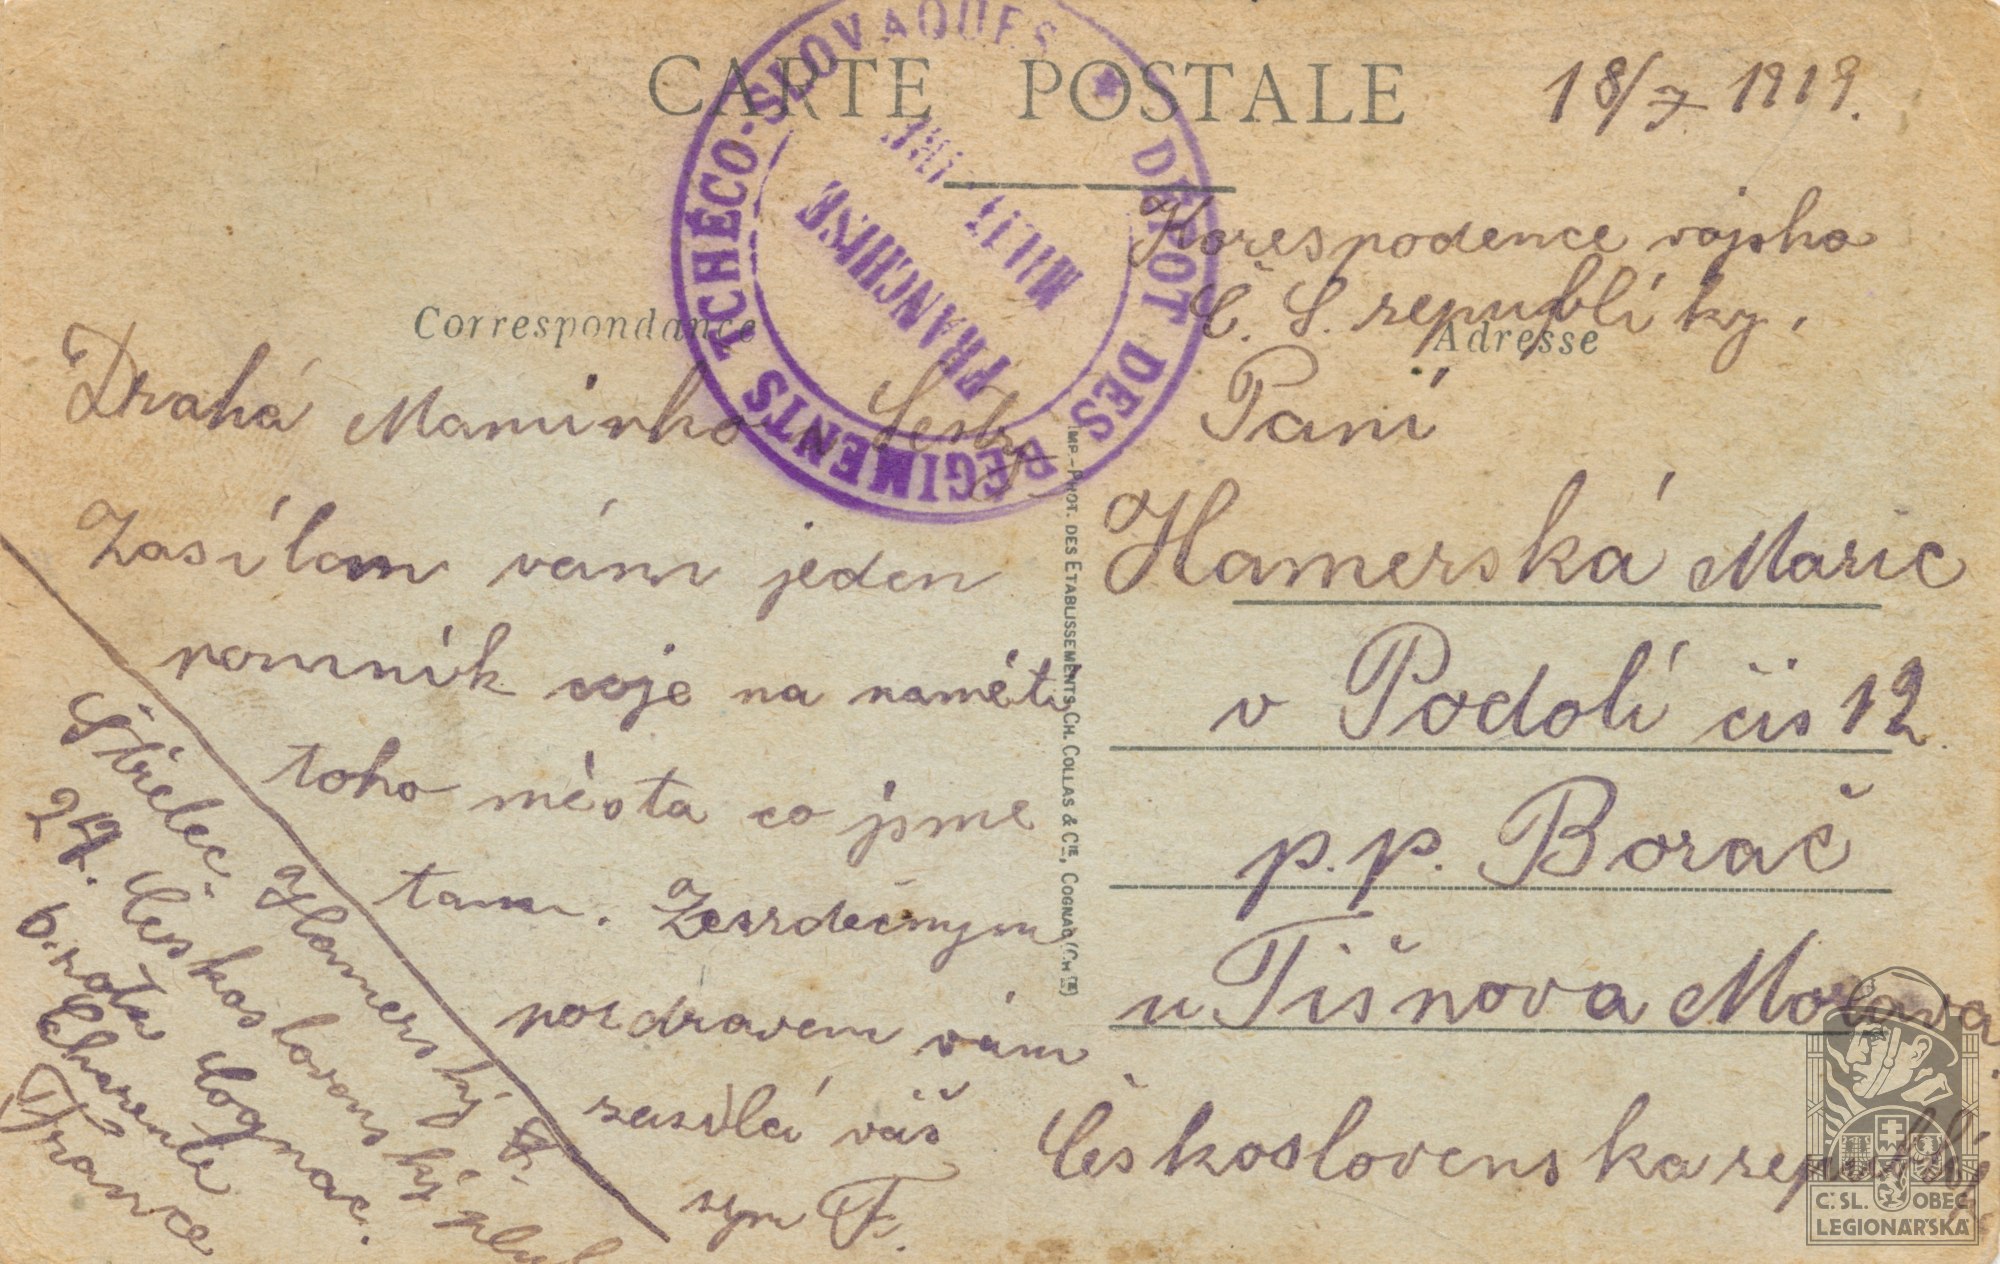 CARTE POSTALE
18/7 1919.
DÉPOT DES RÉGIMENTS TCHÉCO-SLOVAQUES *
FRANCHISE
MILIT
Correspondance
Adresse
Drahá Maminko
Zasílam vám jeden
pomník voje na naměti
toho města co jsme
tam. Zesrdečnym
pozdravem vám
zasilá váš
syn F.
Střelec. Hamerský F.
Československý pluk
6. rota Cognac.
Charente
France
IMP.-PHOT. DES ETABLISSEMENTS CH. COLLAS & CIE, COGNAC (CHTE)
Korespodence vojska
Č. S. republíky.
Paní
Hamerská Marie
v Podolí čis 12.
p.p. Borač
u Tišnova Morava
Československa republi
Č. SL. OBEC
LEGIONÁŘSKÁ